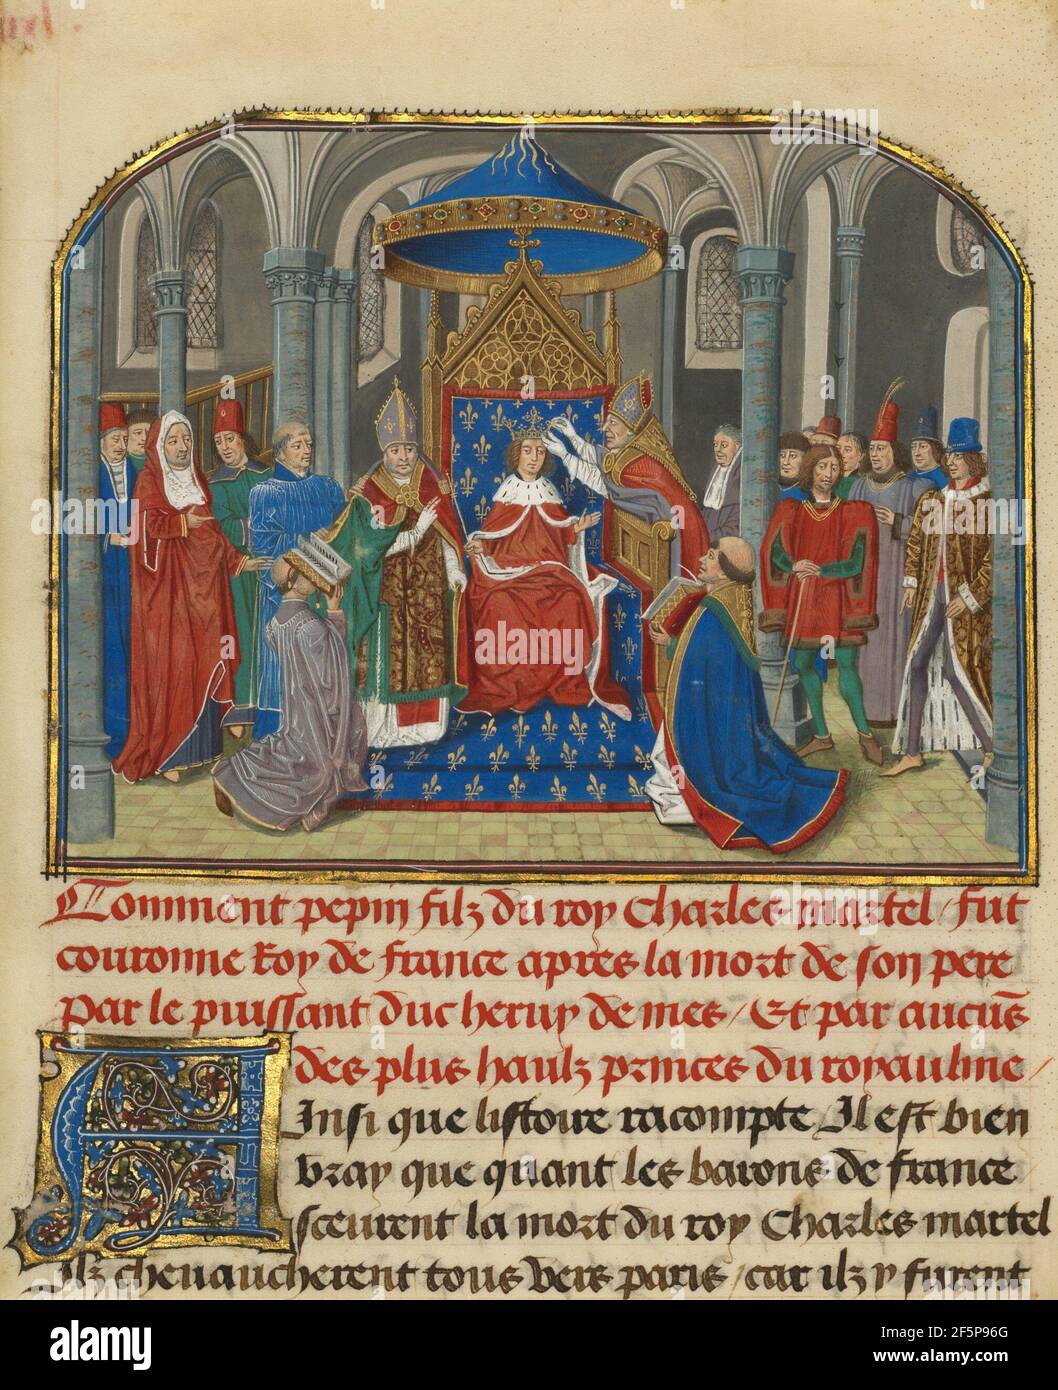 Comment pepin filz du roy Charles martel / fut
couronne Roy de france apres la mort de son pere
Par le puissant duc heruy de mes / Et par aucūs
des plus haulz princes du royaulme /
AInsi que listoire racompte / Il est bien
vray que quant les barons de france
sceurent la mort du roy Charles martel
Ilz cheuaucherent tous vers paris / car ilz y furent
alamy
Image ID: 2F5P96G
www.alamy.com